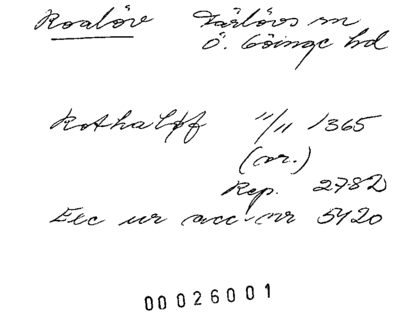 Roalöv Färlövs sn
Ö. Göinge hd
Rothaløf 11/11 1365
(or.)
Rep. 2782
Exc ur acc-nr 5420
00026001